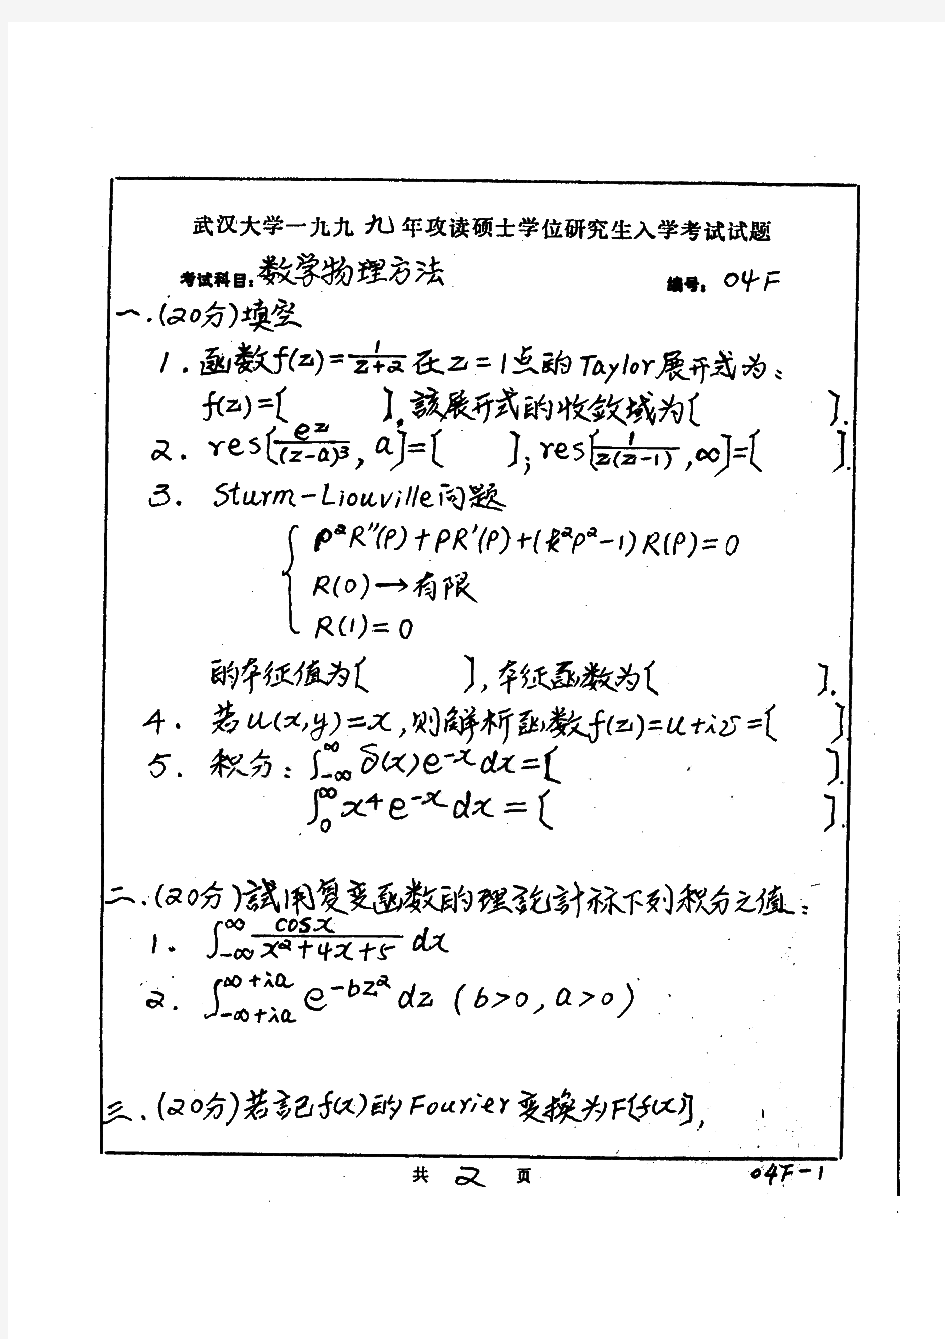 武汉大学一九九九年攻读硕士学位研究生入学考试试题
考试科目：数学物理方法 编号：04F
一.(20分)填空
1. 函数f(z)=1/(z+2)在z=1点的Taylor展开式为：
f(z)=[ ],該展开式的收敛域为[ ].
2. res[e^z/(z-a)^3, a]=[ ]; res[1/(z(z-1)),∞]=[ ].
3. Sturm-Liouville问题
ρ²R''(ρ)+ρR'(ρ)+(k²ρ²-1)R(ρ)=0
R(0)→有限
R(1)=0
的本征值为[ ],本征函数为[ ].
4. 若u(x,y)=x,则解析函数f(z)=u+iv=[ ]
5. 积分：∫_{-∞}^{∞} δ(x)e^{-x}dx=[ ].
∫_0^∞ x^4 e^{-x}dx=[ ].
二.(20分)試用复变函数的理論計祘下列积分之值：
1. ∫_{-∞}^{∞} cosx/(x²+4x+5) dx
2. ∫_{-∞+ia}^{∞+ia} e^{-bz²}dz (b>0,a>0)
三.(20分)若記f(x)的Fourier变换为F[f(x)],
共 2 页 04F-1